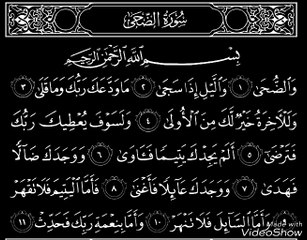 سُورَةُ الضُّحَىٰ
بِسْمِ اللَّهِ الرَّحْمَٰنِ الرَّحِيمِ
وَالضُّحَىٰ ١ وَالَّيْلِ إِذَا سَجَىٰ ٢ مَا وَدَّعَكَ رَبُّكَ وَمَا قَلَىٰ ٣
وَلَلْآخِرَةُ خَيْرٌ لَّكَ مِنَ الْأُولَىٰ ٤ وَلَسَوْفَ يُعْطِيكَ رَبُّكَ
فَتَرْضَىٰ ٥ أَلَمْ يَجِدْكَ يَتِيمًا فَآوَىٰ ٦ وَوَجَدَكَ ضَآلًّا
فَهَدَىٰ ٧ وَوَجَدَكَ عَآئِلًا فَأَغْنَىٰ ٨ فَأَمَّا الْيَتِيمَ فَلَا تَقْهَرْ
٩ وَأَمَّا السَّآئِلَ فَلَا تَنْهَرْ ١٠ وَأَمَّا بِنِعْمَةِ رَبِّكَ فَحَدِّثْ ١١
Made with
VideoShow